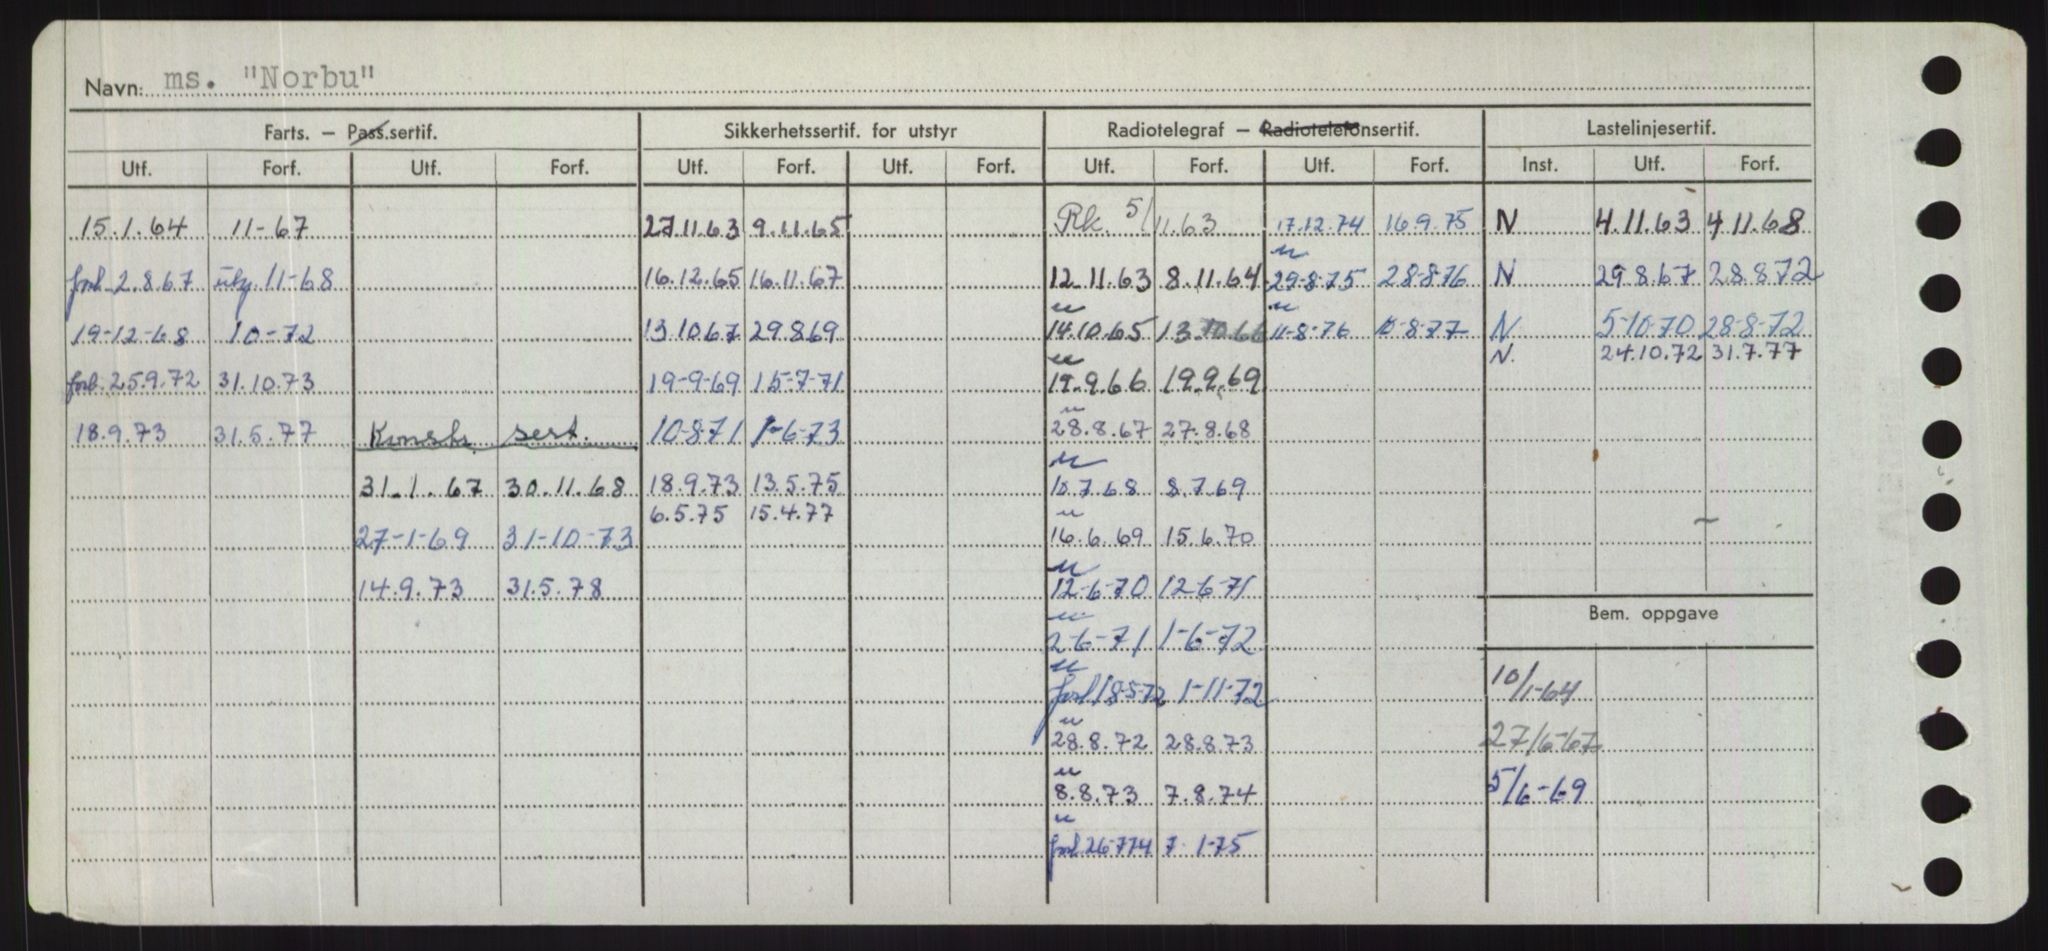 Navn: ms. "Norbu"
Farts. – Pass.sertif. Sikkerhetssertif. for utstyr Radiotelegraf – Radiotelefonsertif. Lastelinjesertif.
Utf. Forf. Utf. Forf. Utf. Forf. Utf. Forf. Utf. Forf. Utf. Forf. Inst. Utf. Forf.
15.1.64 11-67 27.11.63 9.11.65 Rk. 5/11.63 17.12.74 16.9.75 N 4.11.63 4.11.68
forl. 2.8.67 11-68 16.12.65 16.11.67 12.11.63 8.11.64 29-8-75 28-8-76 N 29.8.67 28.8.72
19-12-68 10-72 13.10.67 29.8.69 14.10.65 13.10.66 11-8-76 10-8-77 N 5-10-70 28-8-72
N. 24.10.72 31.7.77
forl. 25.9.72 31.10.73 19-9-69 15-7-71 19.9.66 19.9.69
18.9.73 31.5.77 Konstr. sert. 10-8-71 1-6-73 28.8.67 27.8.68
31.1.67 30.11.68 18.9.73 13.5.75 10.7.68 8.7.69
6.5.75 15.4.77
27-1-69 31-10-73 16.6.69 15.6.70
14.9.73 31.5.78 12-6-70 12-6-71
Bem. oppgave
2-6-71 1-6-72
10/1-64
forl 18-5-72 1-11-72
28.8.72 28.8.73 27/6-67
8.8.73 7.8.74 5/6-69
forl. 26-7-74 7-1-75